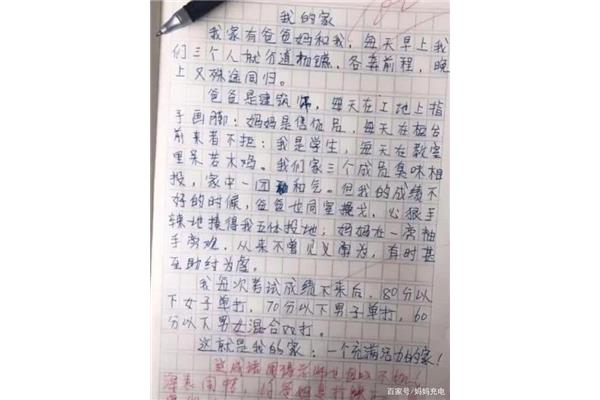 我的家
我家有爸爸妈和我，每天早上我
们三个人就分道扬镳，各奔前程，晚
上又殊途同归。
爸爸是建筑师，每天在工地上指
手画脚；妈妈是售货员，每天在柜台
前来者不拒；我是学生，每天在教室
里呆若木鸡。我们家三个成员臭味相
投，家中一团和气。但我的成绩不
好的时候，爸爸也同室操戈，心狠手
辣地揍得我五体投地；妈妈在一旁袖
手旁观，从来不曾见义勇为，有时甚
至助纣为虐。
我每次考试成绩下来后，80分以
下女子单打，70分以下男子单打，60
分以下男女混合双打。
这就是我的家：一个充满活力的家！
百家号/妈妈充电